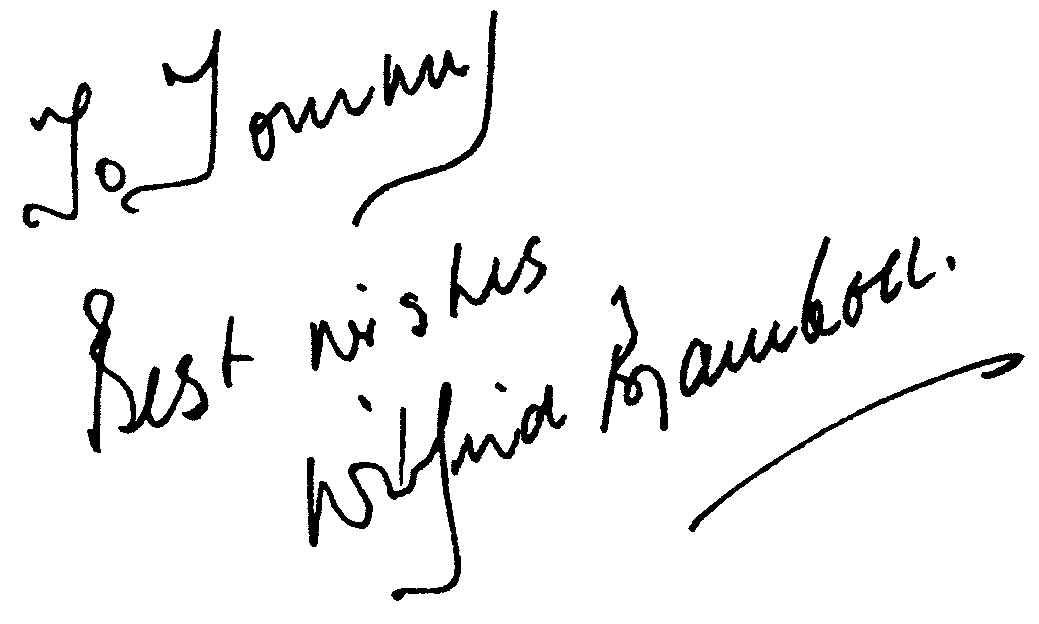 To Tommy
Best wishes
Wilfrid Brambell.